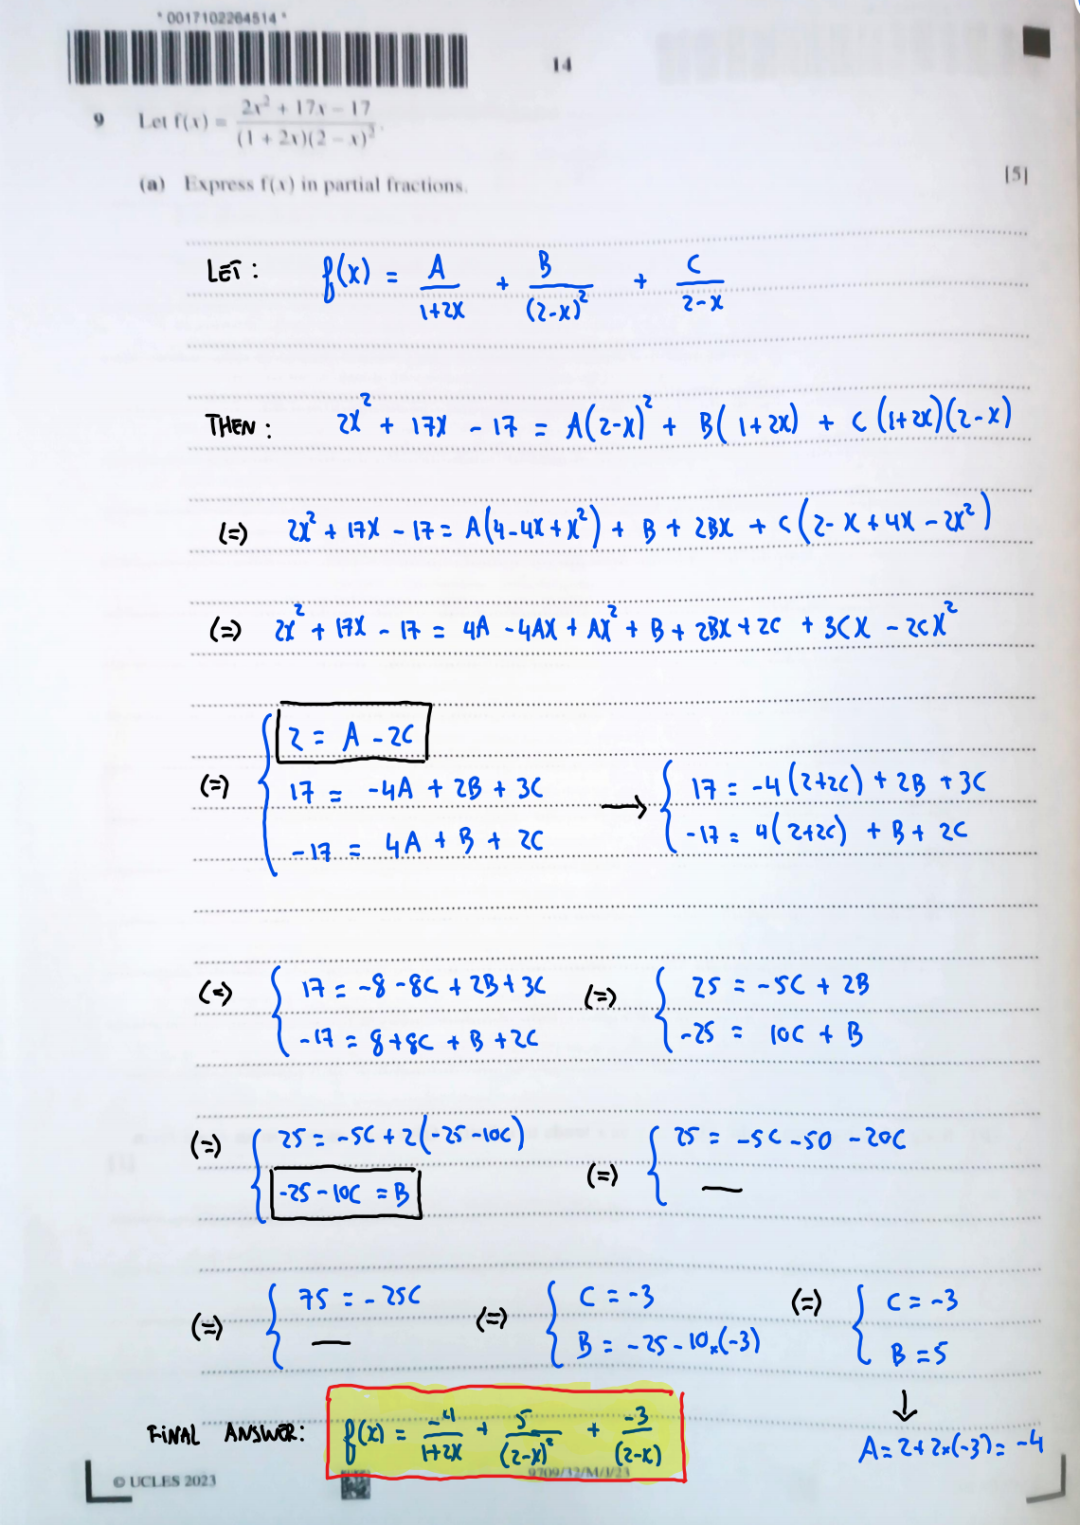 * 0017102264514 *
14
9 Let f(x) = (2x² + 17x − 17) / ((1 + 2x)(2 − x)²).
(a) Express f(x) in partial fractions. [5]
LET : f(x) = A/(1+2x) + B/(2-x)² + C/(2-x)
THEN : 2x² + 17x - 17 = A(2-x)² + B(1+2x) + C(1+2x)(2-x)
(=) 2x² + 17x - 17 = A(4-4x+x²) + B + 2Bx + C(2-x+4x-2x²)
(=) 2x² + 17x - 17 = 4A - 4Ax + Ax² + B + 2Bx + 2C + 3Cx - 2Cx²
(=) { 2 = A - 2C
17 = -4A + 2B + 3C → { 17 = -4(2+2C) + 2B + 3C
-17 = 4A + B + 2C -17 = 4(2+2C) + B + 2C
(=) { 17 = -8 - 8C + 2B + 3C (=) { 25 = -5C + 2B
-17 = 8+8C + B + 2C -25 = 10C + B
(=) { 25 = -5C + 2(-25-10C) (=) { 25 = -5C - 50 - 20C
-25 - 10C = B —
(=) { 75 = -25C (=) { C = -3 (=) { C = -3
— B = -25 - 10×(-3) B = 5
↓
FINAL ANSWER: f(x) = -4/(1+2x) + 5/(2-x)² + -3/(2-x) A = 2+2×(-3) = -4
© UCLES 2023 9709/32/M/J/23